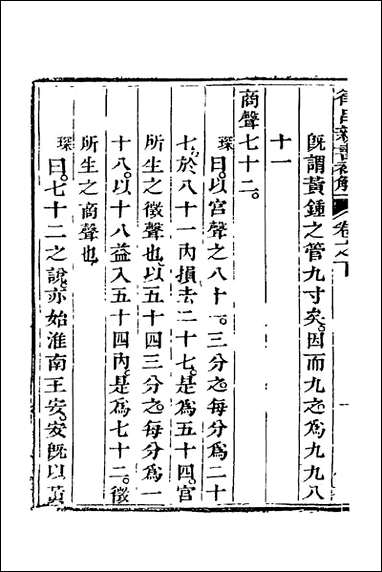 律呂新書初解 卷之下
既謂黃鍾之管九寸矣因而九之為九九八
十一
商聲七十二
琛曰以宮聲之八十一三分之每分為二十
七於八十一內損去二十七是為五十四宮
所生之徵聲也以五十四三分之每分為一
十八以十八益入五十四內是為七十二徵
所生之商聲也
琛曰七十二之說亦始淮南王安安既以黃